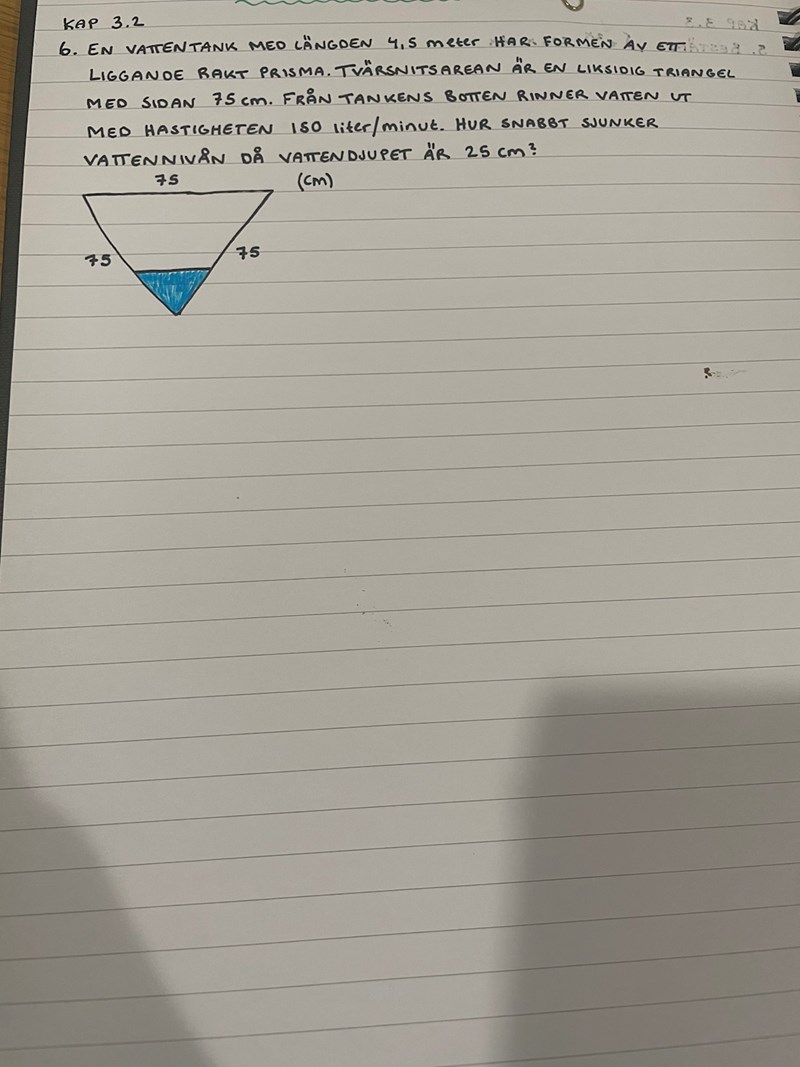 KAP 3.2
6. EN VATTENTANK MED LÄNGDEN 4,5 meter HAR FORMEN AV ETT
LIGGANDE RAKT PRISMA. TVÄRSNITSAREAN ÄR EN LIKSIDIG TRIANGEL
MED SIDAN 75 cm. FRÅN TANKENS BOTTEN RINNER VATTEN UT
MED HASTIGHETEN 150 liter/minut. HUR SNABBT SJUNKER
VATTENNIVÅN DÅ VATTENDJUPET ÄR 25 cm?
75 (cm)
75 75